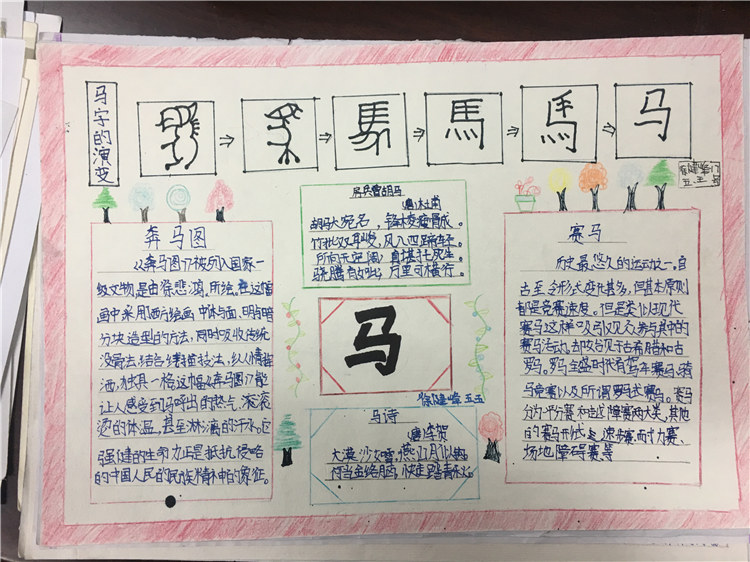 马字的演变
馬
馬
马
奔马图
《奔马图》被列入国家一
级文物,是由徐悲鸿所绘,在这幅
画中采用西方绘画中体与面、明暗
分块造型的方法,同时吸收传统
没骨法,结合
洒,独具一格这幅《奔马图》能
让人感受到马呼出的热气、滚滚
烫的体温,甚至淋漓的汗水,它
强健的生命力正是抵抗侵略
的中国人民的民族精神的象征。
房兵曹胡马
唐 杜甫
胡马大宛名,锋棱瘦骨成。
竹批双耳峻,风入四蹄轻。
所向无空阔,真堪托死生。
骁腾有如此,万里可横行。
马
五五
马诗
唐 李贺
大漠沙如雪,燕山月似钩
何当金络脑,快走踏清秋。
赛马
历史最悠久的运动之一,自
古至今形式变化甚多,但基本原则
都是竞赛速度。但是类似现代
赛马这样可以吸引观众参与其中的
赛马活动,却始见于古希腊和古
罗马。罗马全盛时代有驾车赛马、骑
马竞赛以及所谓罗马式赛马。赛马
分为平分赛和越障赛两大类,其他
的赛马形式是速步赛、耐力赛、
场地障碍赛等